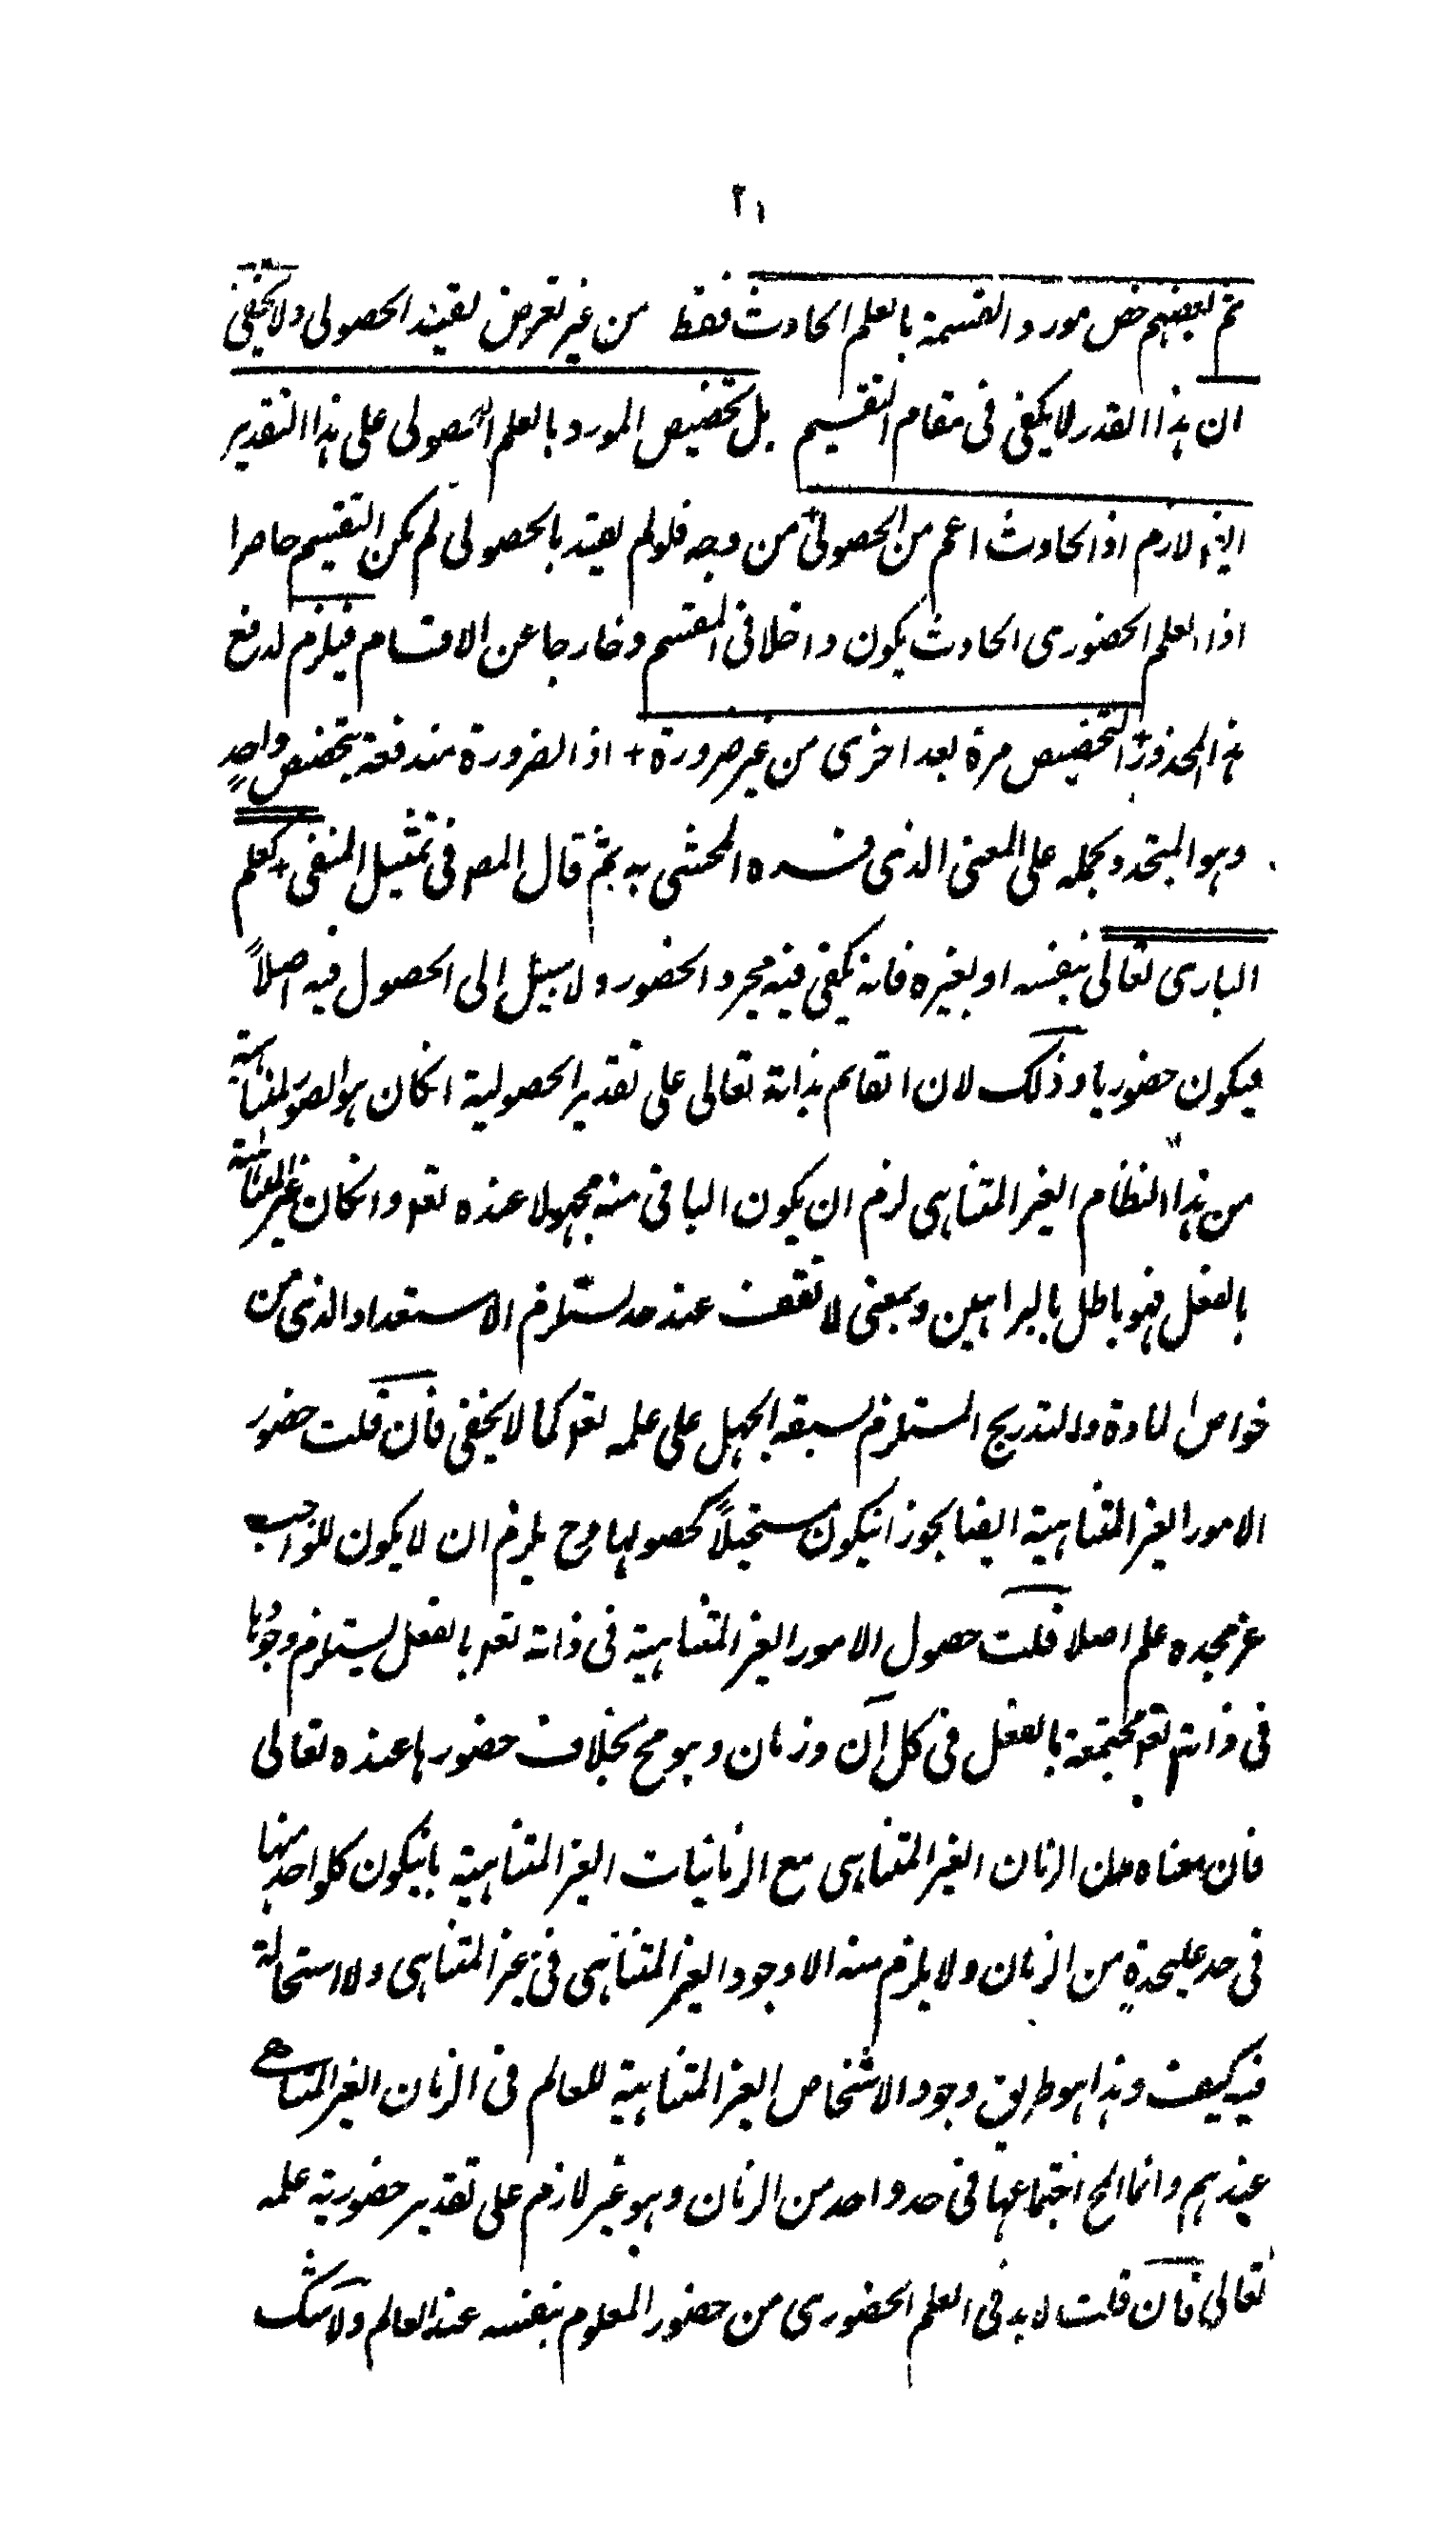 ٢١
ثم بعضهم خص مورد القسمة بالعلم الحادث فقط من غير تعرض لقيد الحصولى ولا يخفى
ان هذا القدر لا يكفى فى مقام التقسيم بل تخصيص المورد بالعلم الحصولى على هذا التقدير
ايضا لازم اذ الحادث اعم من الحصولى من وجه فلو لم يقيد بالحصولى لم يكن التقسيم حاصرا
اذ العلم الحضورى الحادث يكون داخلا فى المقسم وخارجا عن الاقسام فيلزم لدفع
هذا المحذور التخصيص مرة بعد اخرى من غير ضرورة + اذ الضرورة مندفعة بتخصيص واحدٍ
وهو المتجدد بحمله على المعنى الذى فسره المحشى به ثم قال المصـ فى تمثيل المنفى + كعلم
البارى تعالى بنفسه او بغيره فانه يكفى فيه مجرد الحضور ولا سبيل الى الحصول فيه اصلاً
فيكون حضوريا وذلك لان القائم بذاته تعالى على تقدير الحصولية انكان هو الصور المتناهية
من هذا النظام الغير المتناهى لزم ان يكون الباقى منه مجهولا عنده تعـ وانكان غير المتناهية
بالفعل فهو باطل بالبراهين وبمعنى لا تقف عند حد يستلزم الاستعداد الذى من
خواص المادة والتدريج المستلزم لسبقه الجهل على علمه تعـ كما لا يخفى فان قلت حضور
الامور الغير المتناهية ايضا يجوز انيكون مستحيلاً كحصولها وح يلزم ان لا يكون للواجب
عز مجده علم اصلا قلت حصول الامور الغير المتناهية فى ذاته تعـ بالفعل يستلزم وجودها
فى ذاته تعـ مجتمعة بالفعل فى كل آن وزمان وهو مح بخلاف حضورها عنده تعالى
فان معناه ان الزمان الغير المتناهى مع الزمانيات الغير المتناهية بانيكون كلواحد منها
فى حد عليحدةٍ من الزمان ولا يلزم منه الا وجود الغير المتناهى فى غير المتناهى ولا استحالة
فيه كيف وهذا هو طريق وجود الاشخاص الغير المتناهية للعالم فى الزمان الغير المتناهى
عندهم وانما المح اجتماعها فى حد واحد من الزمان وهو غير لازم على تقدير حضورية علمه
تعالى فان قلت لابد فى العلم الحضورى من حضور المعلوم بنفسه عند العالم ولا شك